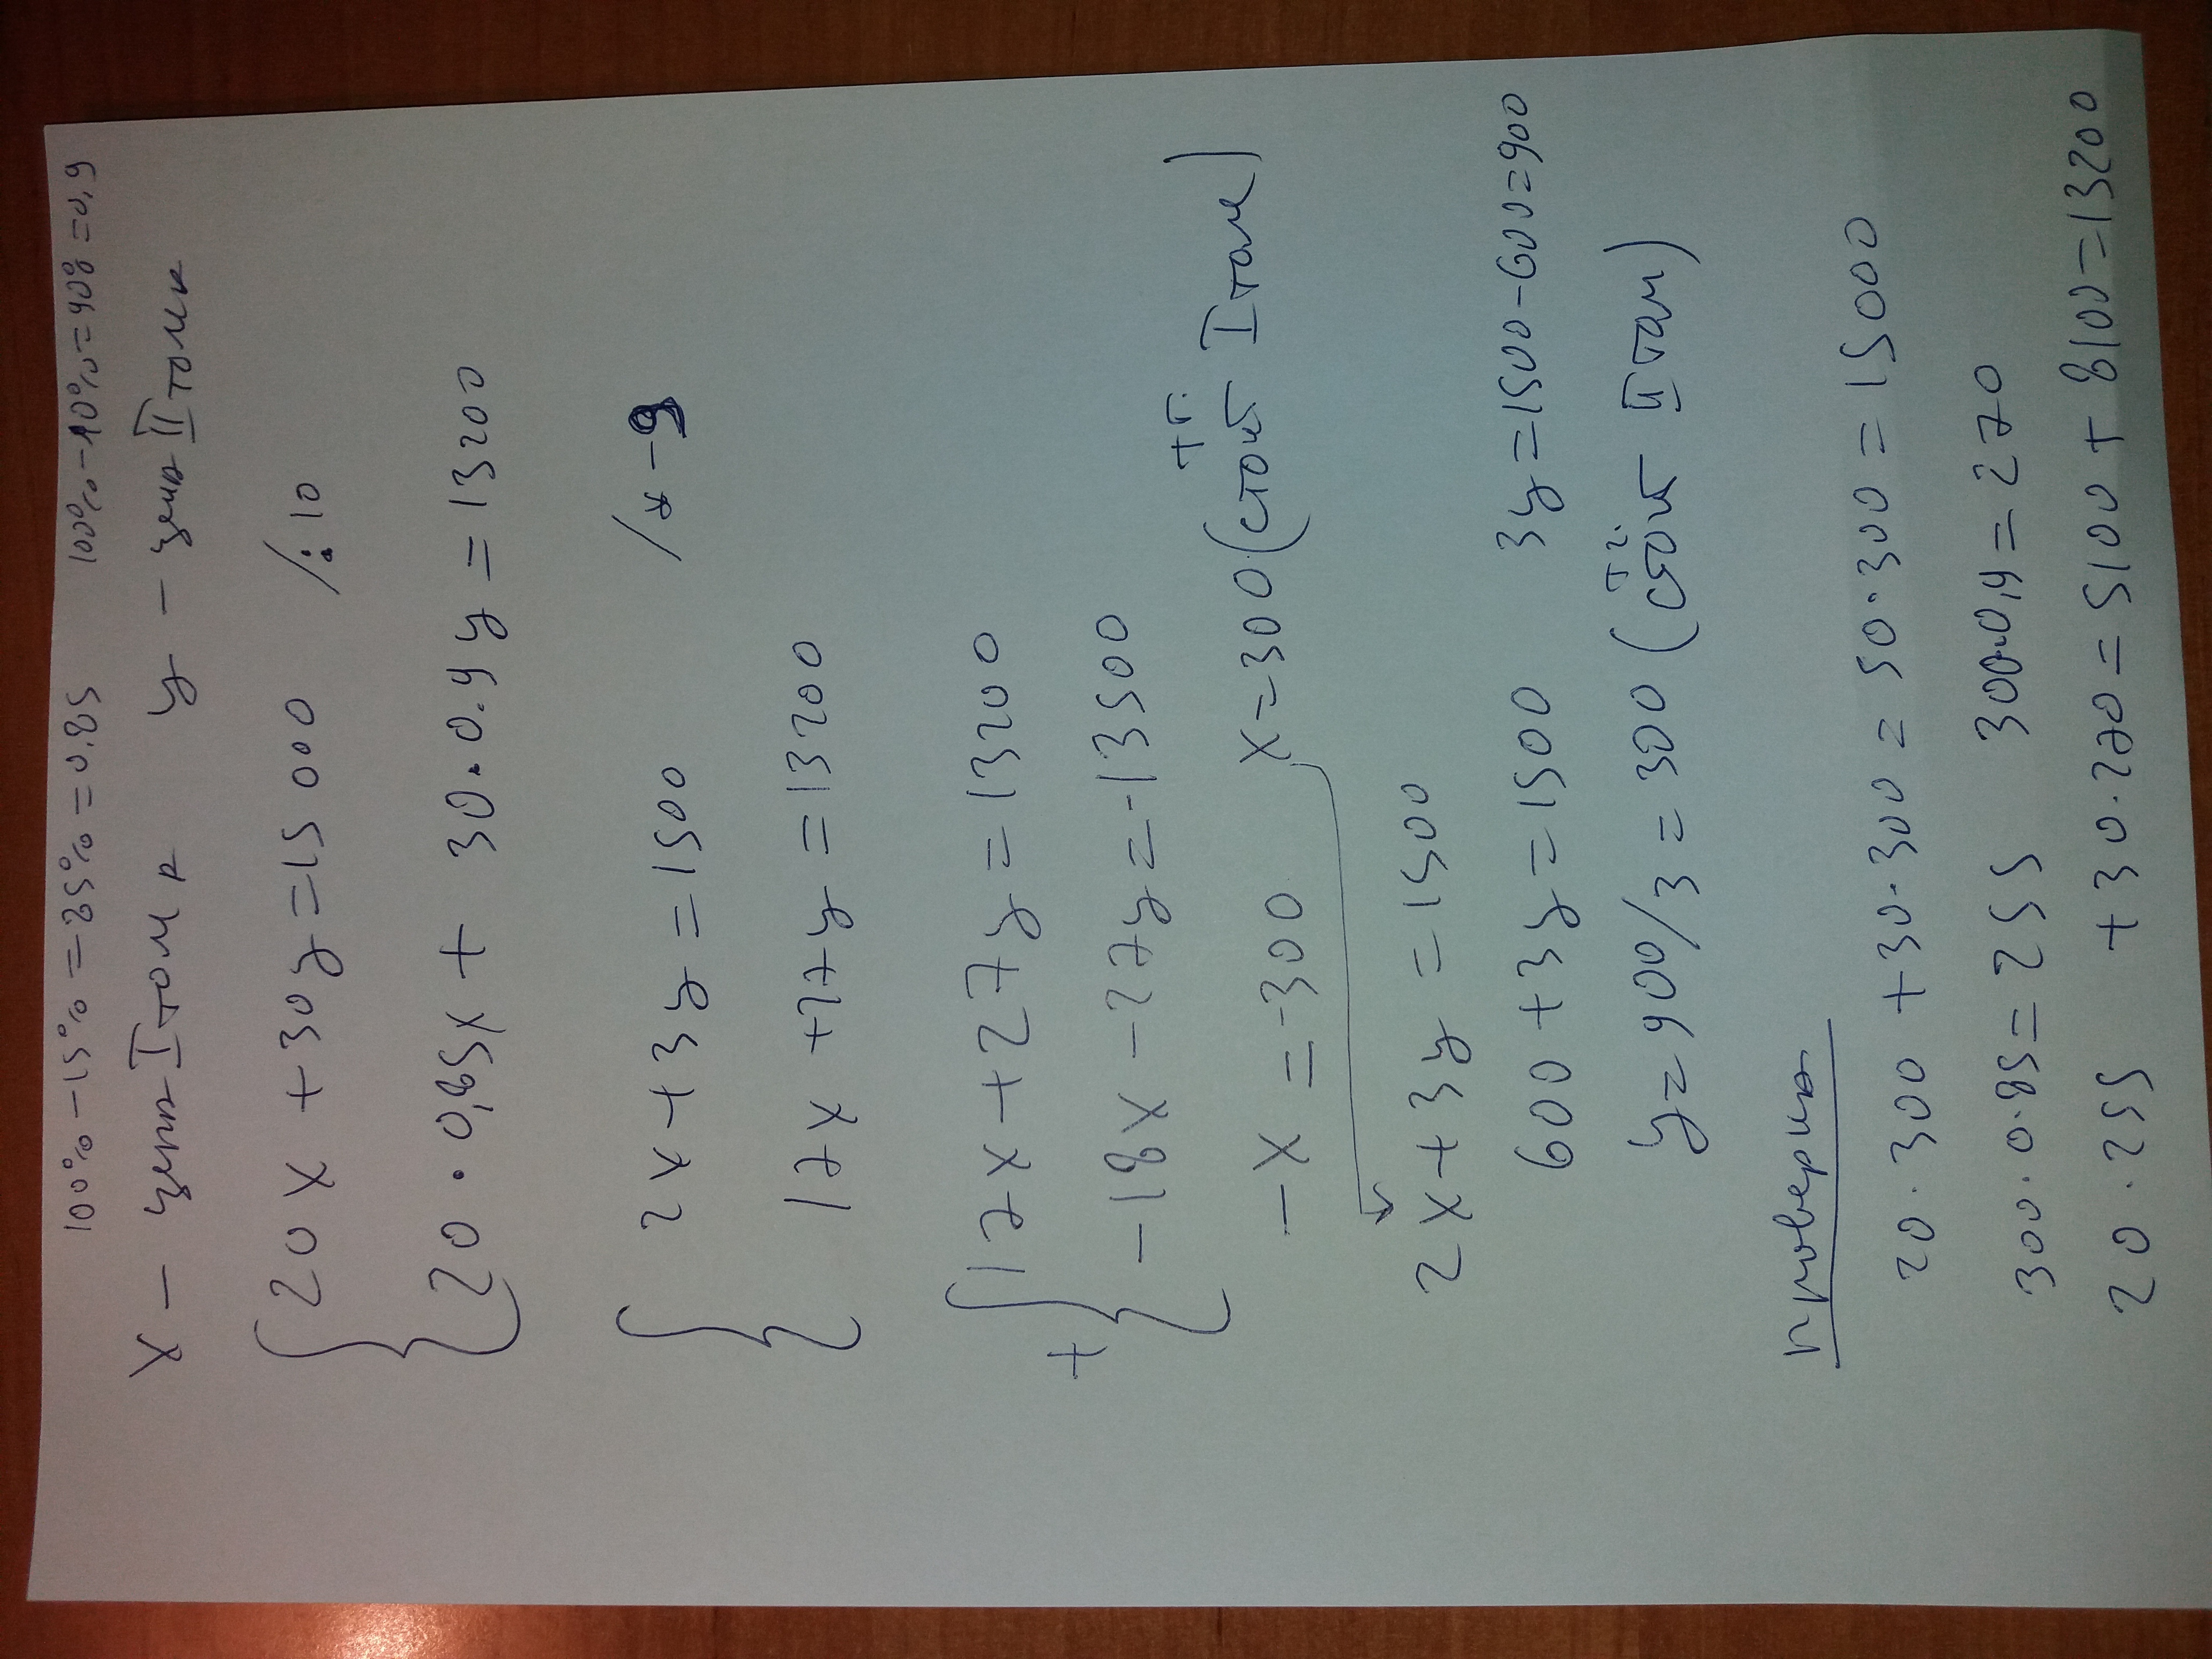 100% - 15% = 85% = 0,85 100% - 10% = 90% = 0,9
x - цена I тома y - цена II тома
20x + 30y = 15000 /: 10
20 · 0,85x + 30 · 0.9y = 13200
2x + 3y = 1500 /* -9
17x + 27y = 13200
17x + 27y = 13200
+
-18x - 27y = -13500
-x = -300 x = 300 (стоит I том)
2x + 3y = 1500
600 + 3y = 1500 3y = 1500 - 600 = 900
y = 900/3 = 300 (стоит II том)
проверка
20 · 300 + 30 · 300 = 50 · 300 = 15000
300 · 0.85 = 255 300·0,9 = 270
20 · 255 + 30 · 270 = 5100 + 8100 = 13200